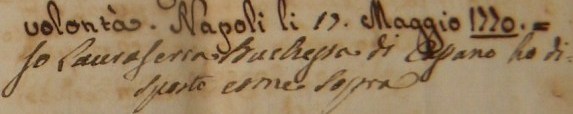 volontà. Napoli li 17. Maggio 1770.=
Io Laura Serra Duchessa di Cassano ho di=
sposto come sopra